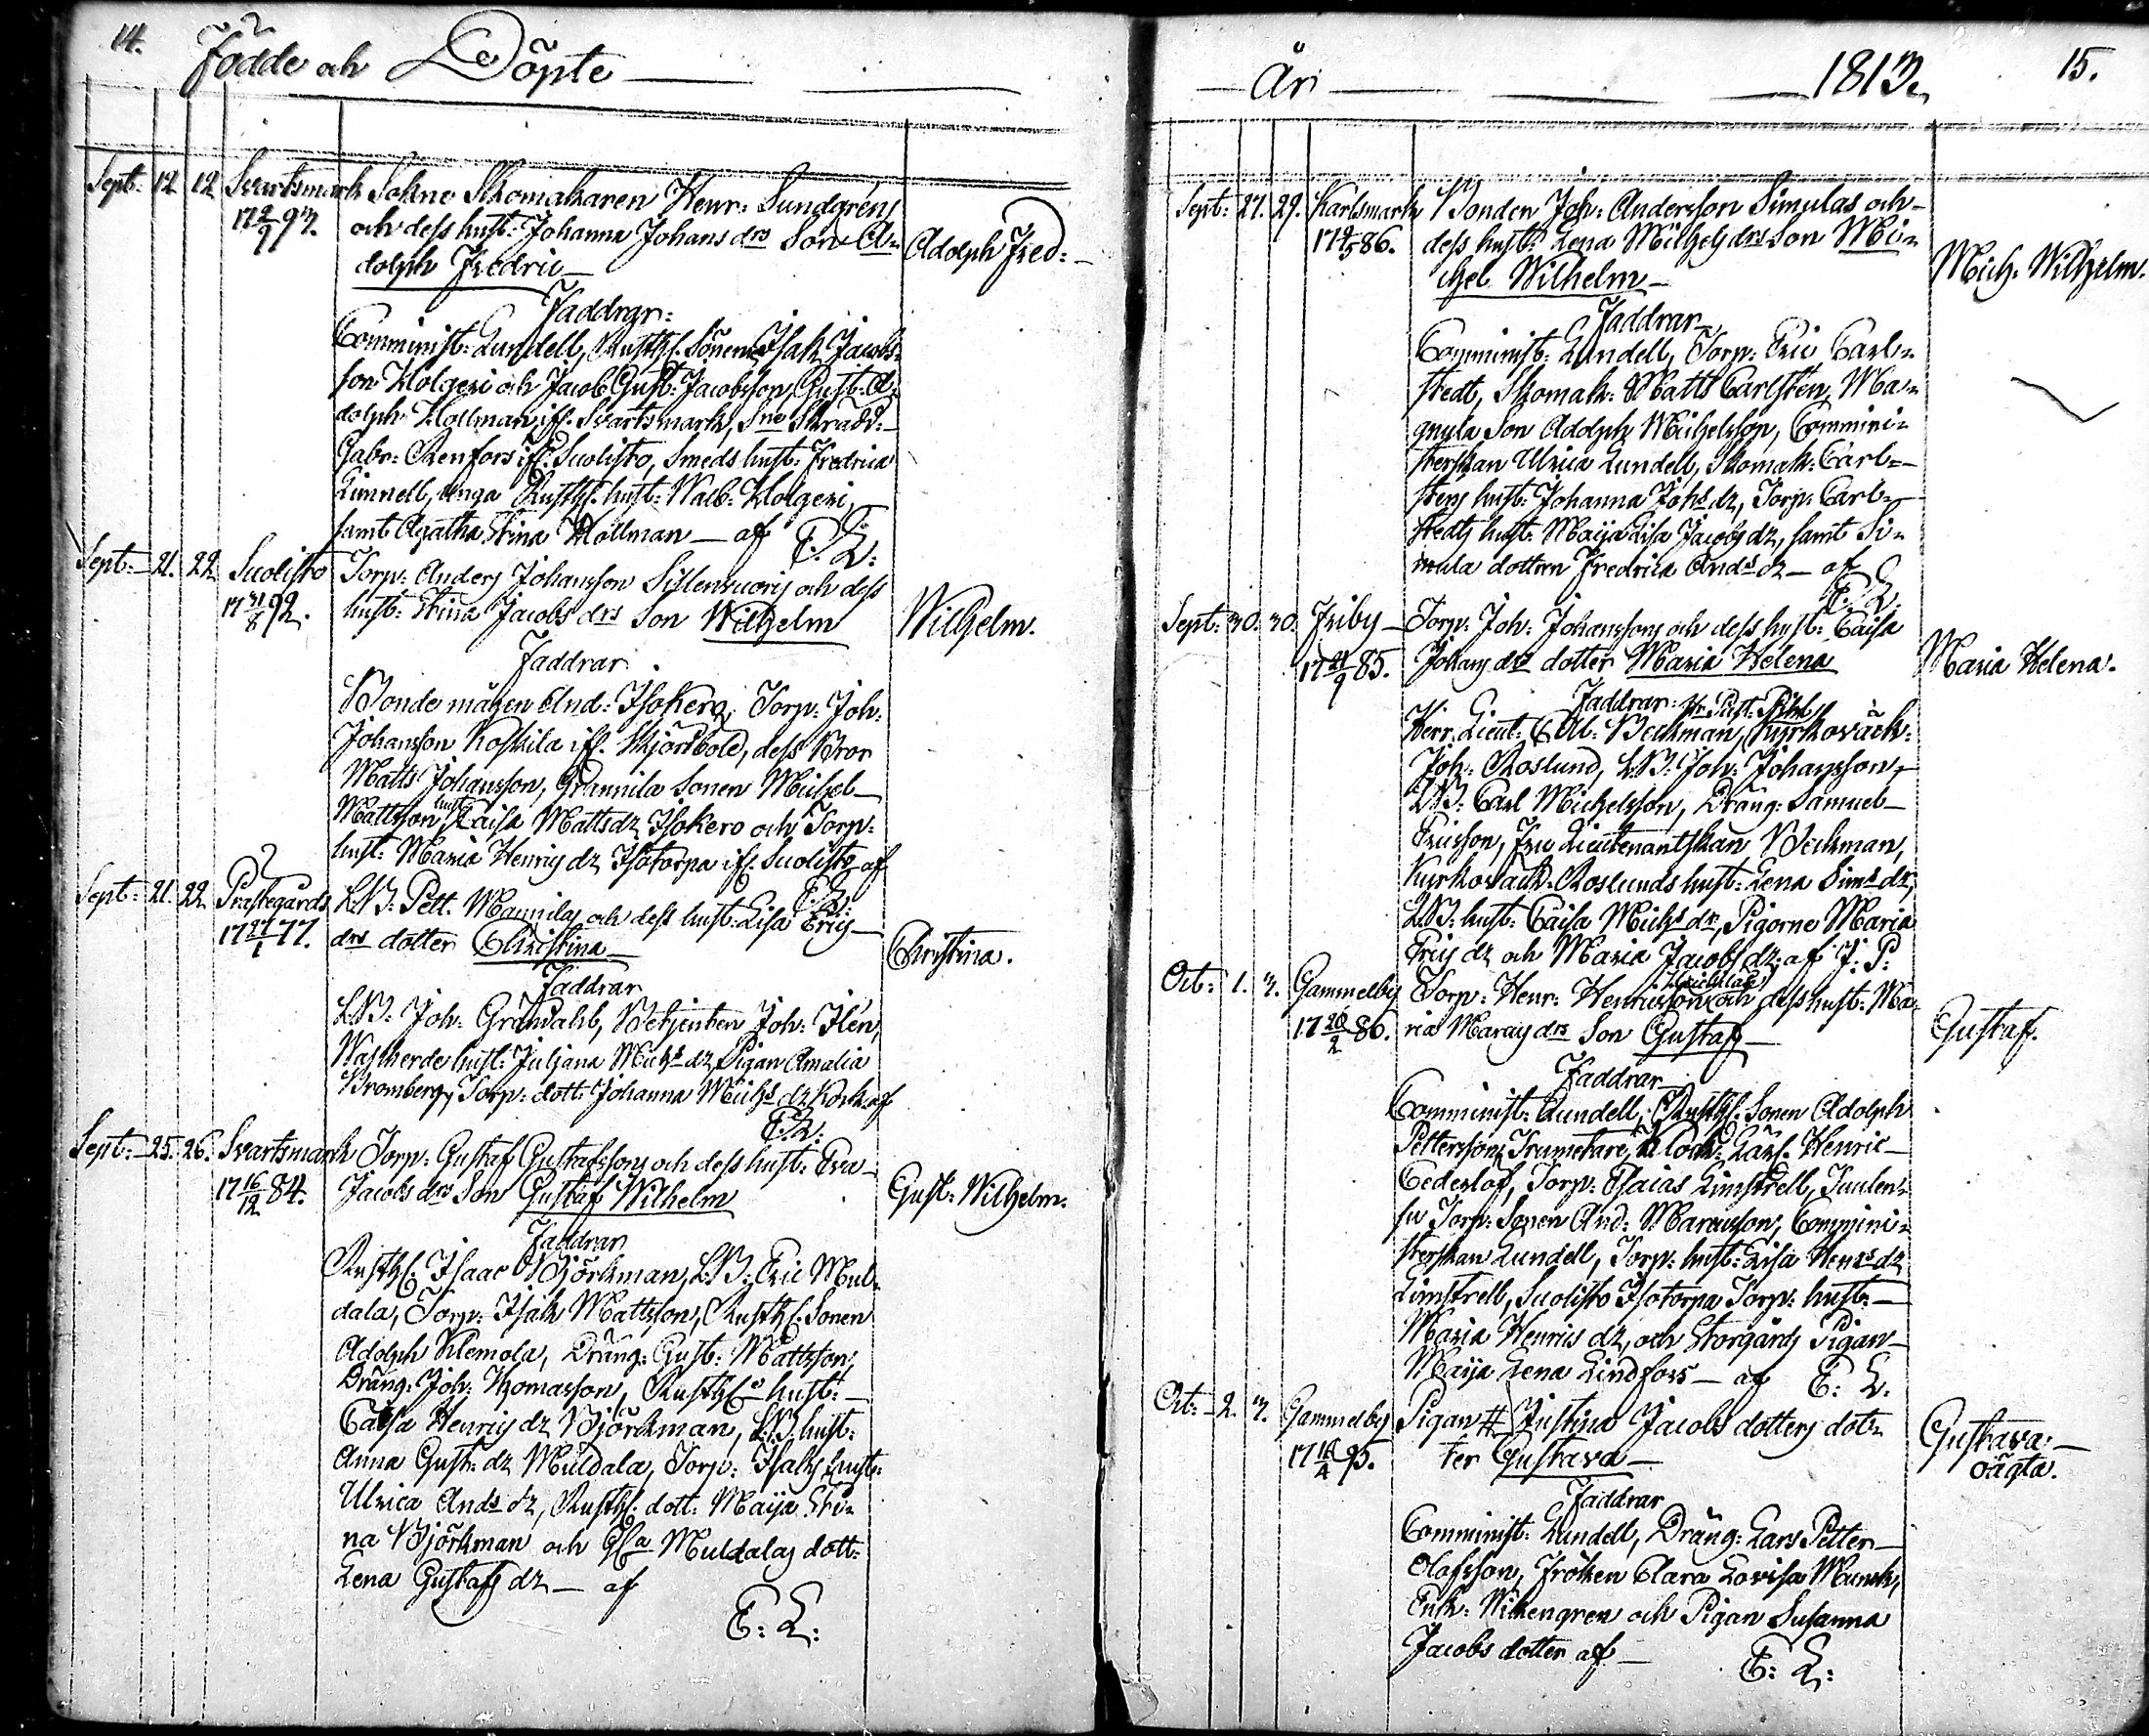 14. Födde och Döpte
Sept: 12 12 Svartsmark Sokne Skomakaren Henr: Sundgrens
17 2/9 93. och dess hust: Johanna Johans drs Son A=
dolph Fredric — Adolph Fred:
Faddrar:
Comminist: Lundell, Rusth. Sönerne Isak Jacobs=
son Holgeri och Jacob Gust: Jacobsson, Gust: A=
dolph Hollman ifr. Svartsmark, Sne Skrädd:
Gabr: Renfors ifr. Suolisto, Smeds hust: Fredrica
Linnell, unga Rusth. hust: Walb: Holgeri,
samt Agatha Stina Hollman — af E: L:
Sept: 21. 22 Suolisto Torp: Anders Johansson Sillensuoris och dess
17 31/8 92. hust: Stina Jacobs drs Son Wilhelm Wilhelm.
Faddrar
Bonde mågen And: Isokero, Torp: Joh:
Johansson Koskila ifr. Skjörbole, dess Bror
Matts Johansson, Grannila Sonen Michel
Mattsson hust: Caisa Matts dr Isokero och Torp:
hust: Maria Henrics dr Isotorpa ifr. Suolisto af
E: L:
Sept: 21. 22. Prästegårds L.B: Pett. Mannilas och dess hust: Lisa Erics
17 27/1 77. drs dotter Christina Christina.
Faddrar
L.B: Joh: Grandahl, Betjenten Joh: Ilén,
Wallherde hust: Juljana Michs dr, Pigan Amalia
Bromberg, Torp: dott: Johanna Michs dr Kock af
E: L:
Sept: 25. 26. Svartsmark Torp: Gustaf Gustafssons och dess hust: Eva
17 16/12 84. Jacobs drs Son Gustaf Wilhelm Gust: Wilhelm.
Faddrar
Rusth. Isaac Björkman, L.B: Eric Mul=
dala, Torp: Isak Mattsson, Rusth. Sonen
Adolph Klemola, Dräng: Gust: Mattsson,
Dräng: Joh: Thomasson, Rusth. hust:
Caisa Henrics dr Björkman, L.B. hust:
Anna Gust: dr Muldala, Torp: Isaks hust:
Ulrica Ands dr, Rusth. dott: Maija Sti=
na Björkman och Muldalas dott:
Lena Gustafs dr — af
E: L:
År 1813. 15.
Sept: 27. 29. Karlsmark Bonden Joh: Andersson Simulas och
17 86. dess hust: Lena Michels drs Son Mi=
chel Wilhelm — Mich: Wilhelm.
Faddrar
Comminist: Lundell, Torp: Eric Carl=
stedt, Skomak: Matts Carlsten, Ma=
gnula Son Adolph Michelsson, Commini=
sterskan Ulrica Lundell, Skomak: Carl=
stens hust: Johanna Johs dr, Torp: Carl=
stedts hust: Maija Lisa Jacobs dr, samt Si=
mula dottren Fredrica Ands dr — af
E: L:
Sept: 30. 30. Friby Torp: Joh: Johanssons och dess hust: Caisa
17 21/9 85. Johans drs dotter Maria Helena Maria Helena.
Faddrar: Hr Past:
Herr Lieut: C Ad: Beckman, Kyrkoväck:
Joh: Roslund, L.B: Joh: Johansson
L.B: Carl Michelsson, Dräng: Samuel
Ericsson, Fru Lieutenantskan Beckman,
Kyrkoväck: Roslunds hust: Lena Sims dr,
L.B: hust: Caisa Michs dr, Pigorne Maria
Erics dr och Maria Jacobs dr, af J: P:
Oct: 1. 3. Gammelby Torp: Henr: Henricsson och dess hust: Ma=
17 20/2 86. ria Marcus drs Son Gustaf Gustaf.
Faddrar
Comminist: Lundell, Rusth. Sonen Adolph
Pettersson, Trumetare, Klock: Lärl. Henric
Cederlöf, Torp: Esaias Limstrell, Juulen=
su Torp: Sonen And: Marcusson, Commini=
sterskan Lundell, Torp: hust: Lisa Henrs dr
Limstrell, Suolisto Isotorpa Torp: hust:
Maria Henrics dr, och Storgårds Pigan
Maija Lena Lindfors — af E: L:
Oct: 2. 3. Gammelby Pigan # Justina Jacobs dotters dot=
17 95. ter Gustava — Gustava — oägta.
Faddrar
Comminist: Lundell, Dräng: Lars Petter
Olofsson, Fröken Clara Lovisa Munck,
Enk: Wikengren och Pigan Susanna
Jacobs dotter af — E: L: